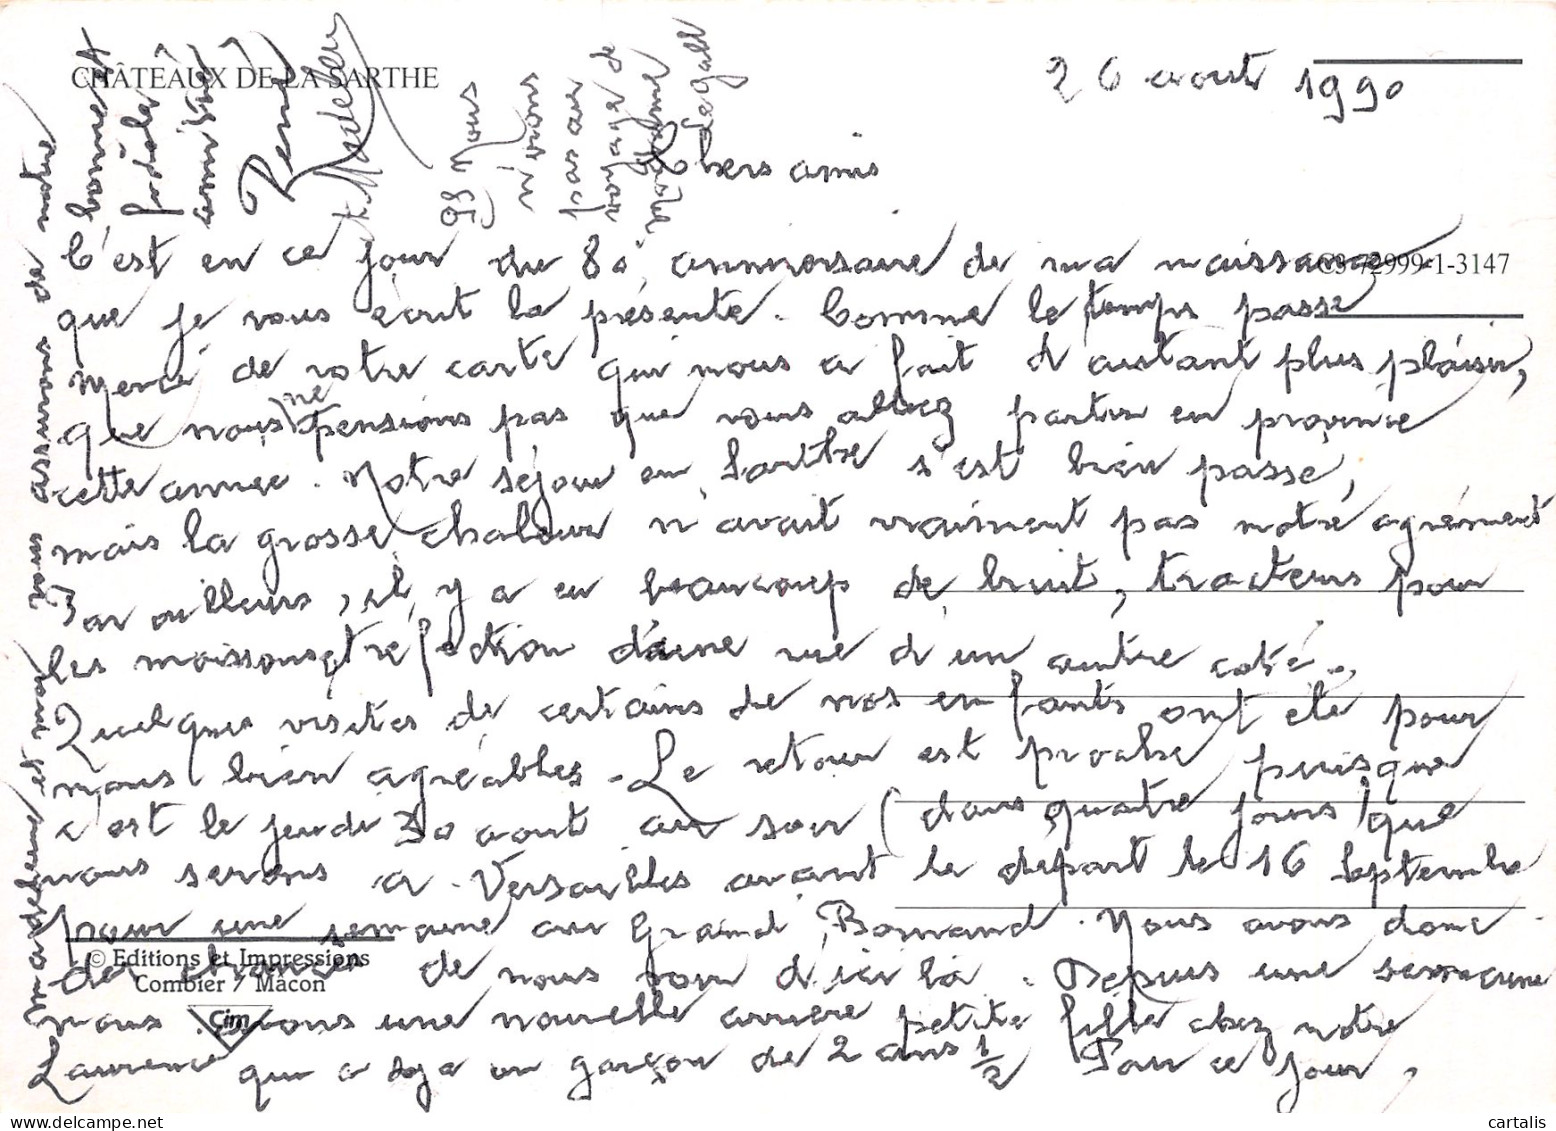 CHÂTEAUX DE LA SARTHE
26 août 1990
Chers amis
C'est en ce jour du 80° anniversaire de ma naissance
que je vous écrit la présente. Comme le temps passe
Merci de votre carte qui nous a fait d'autant plus plaisir,
que nous ne pensions pas que vous alliez partir en province
cette année. Notre séjour en Sarthe s'est bien passé,
mais la grosse chaleur n'avait vraiment pas notre agrément
Par ailleurs, il y a eu beaucoup de bruit, tracteurs pour
les moissons et réfection d'une rue d'un autre coté..
Quelques visites de certains de nos enfants ont été pour
nous bien agréables. Le retour est proche puisque
c'est le jeudi 30 aout au soir (dans quatre jours) que
nous serons a Versailles avant le départ le 16 Septembre
pour une semaine au Grand Bornand. Nous avons donc
des chances de nous voir d'ici là. Depuis une semaine
nous avons une nouvelle arrière petite fille chez notre
Laurence qui a déja un garçon de 2 ans 1/2 Pour ce jour,
Madeleine et moi vous assurons de notre
bonne et
fidèle
amitié
René
et Madeleine
PS Nous
n'irons
pas au
voyage de
Madame
Legall
C3-72999-1-3147
© Editions et Impressions
Combier 7 Macon
Cim
cartalis